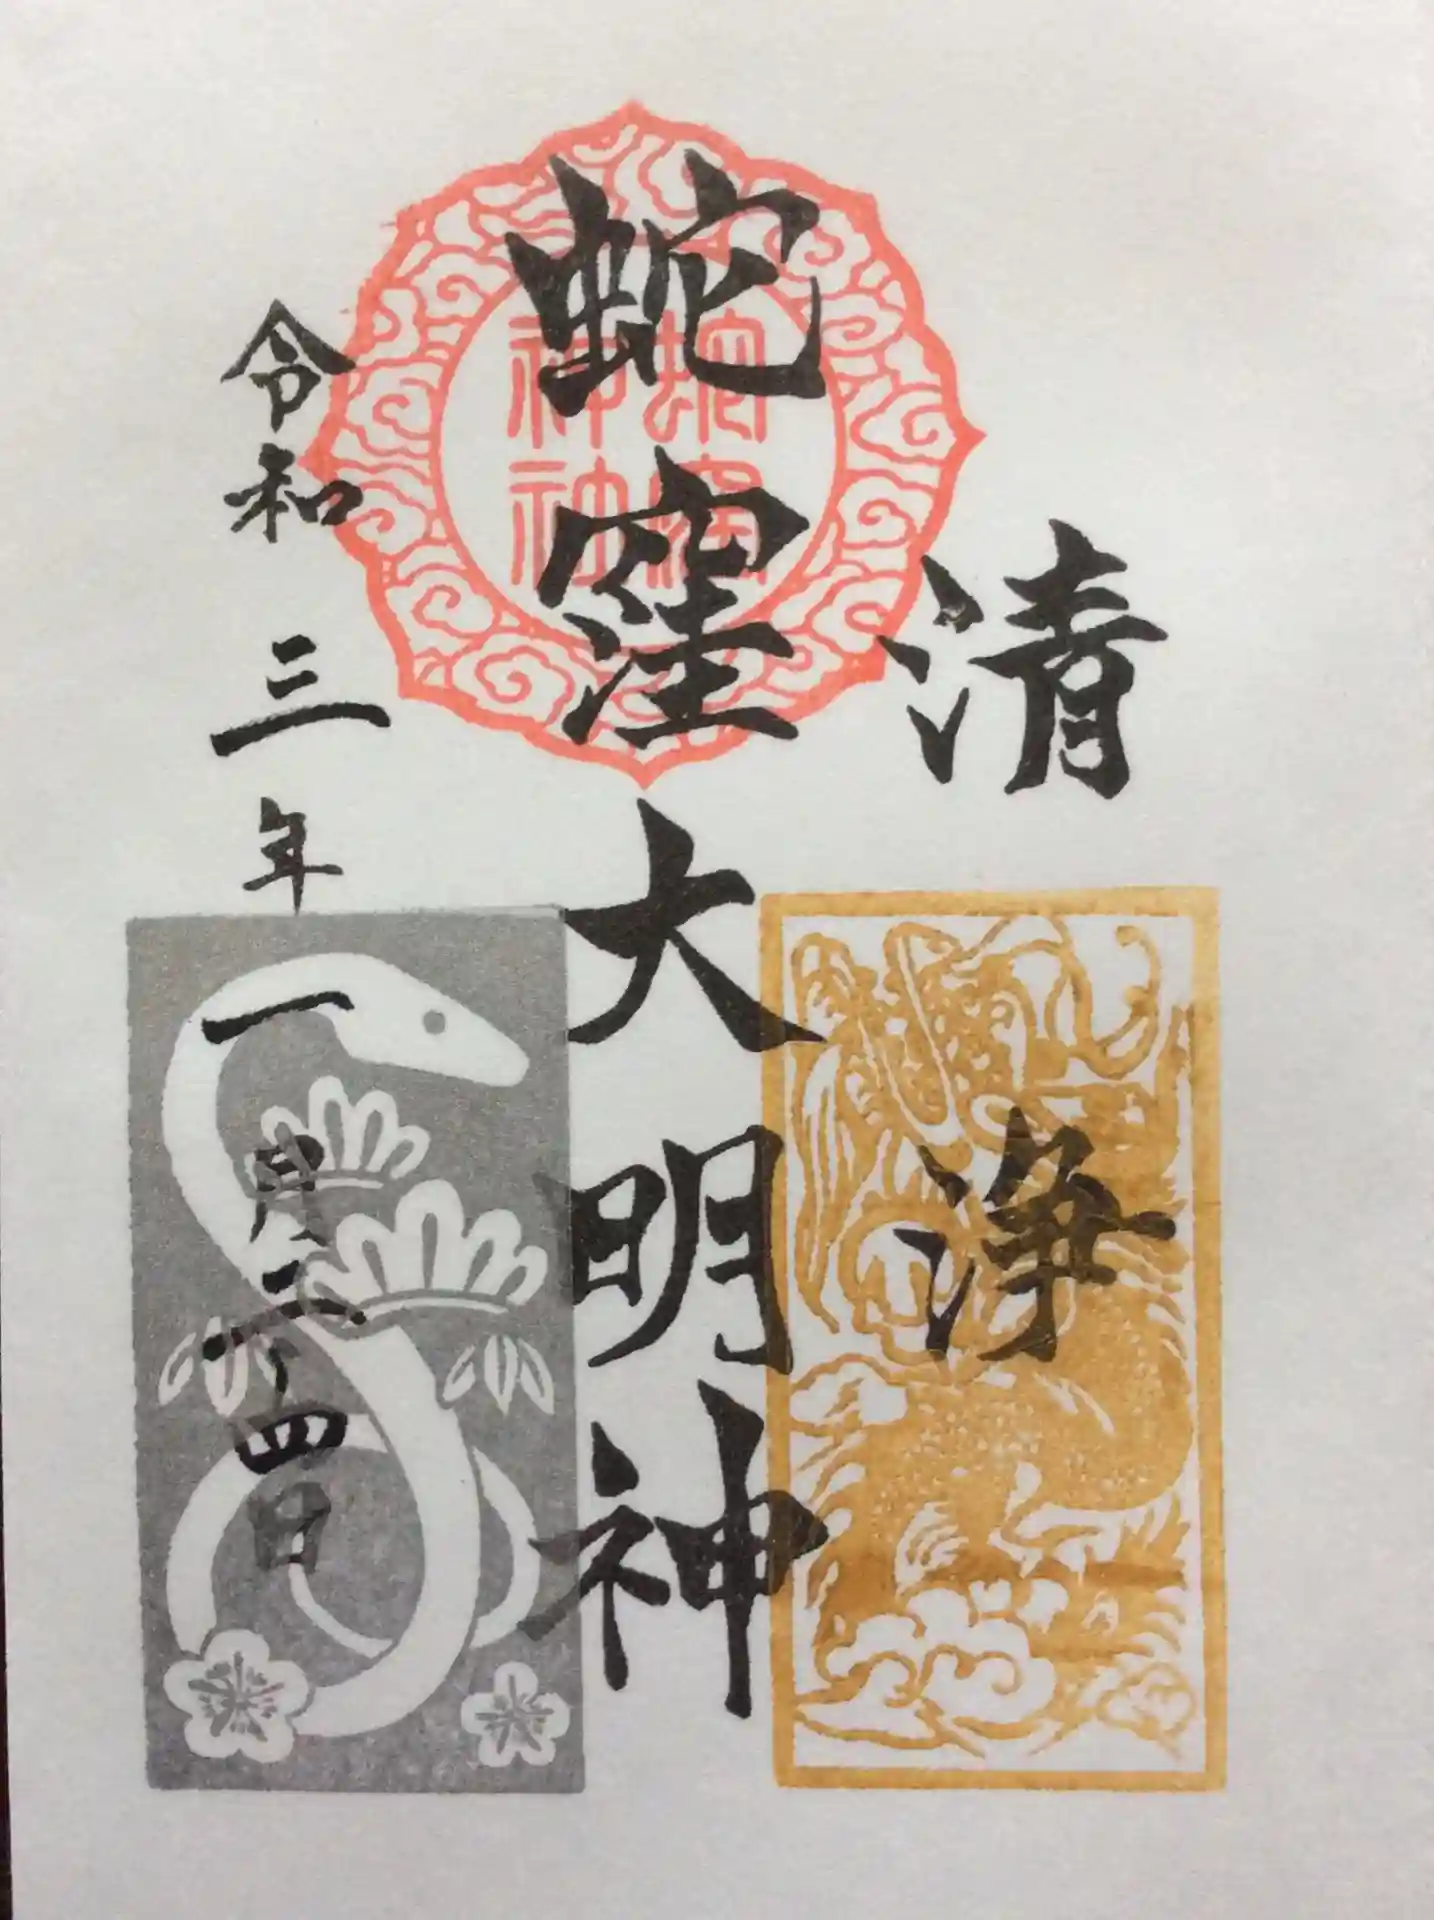 清浄
蛇窪大明神
蛇窪
神社
令和三年一月二十四日